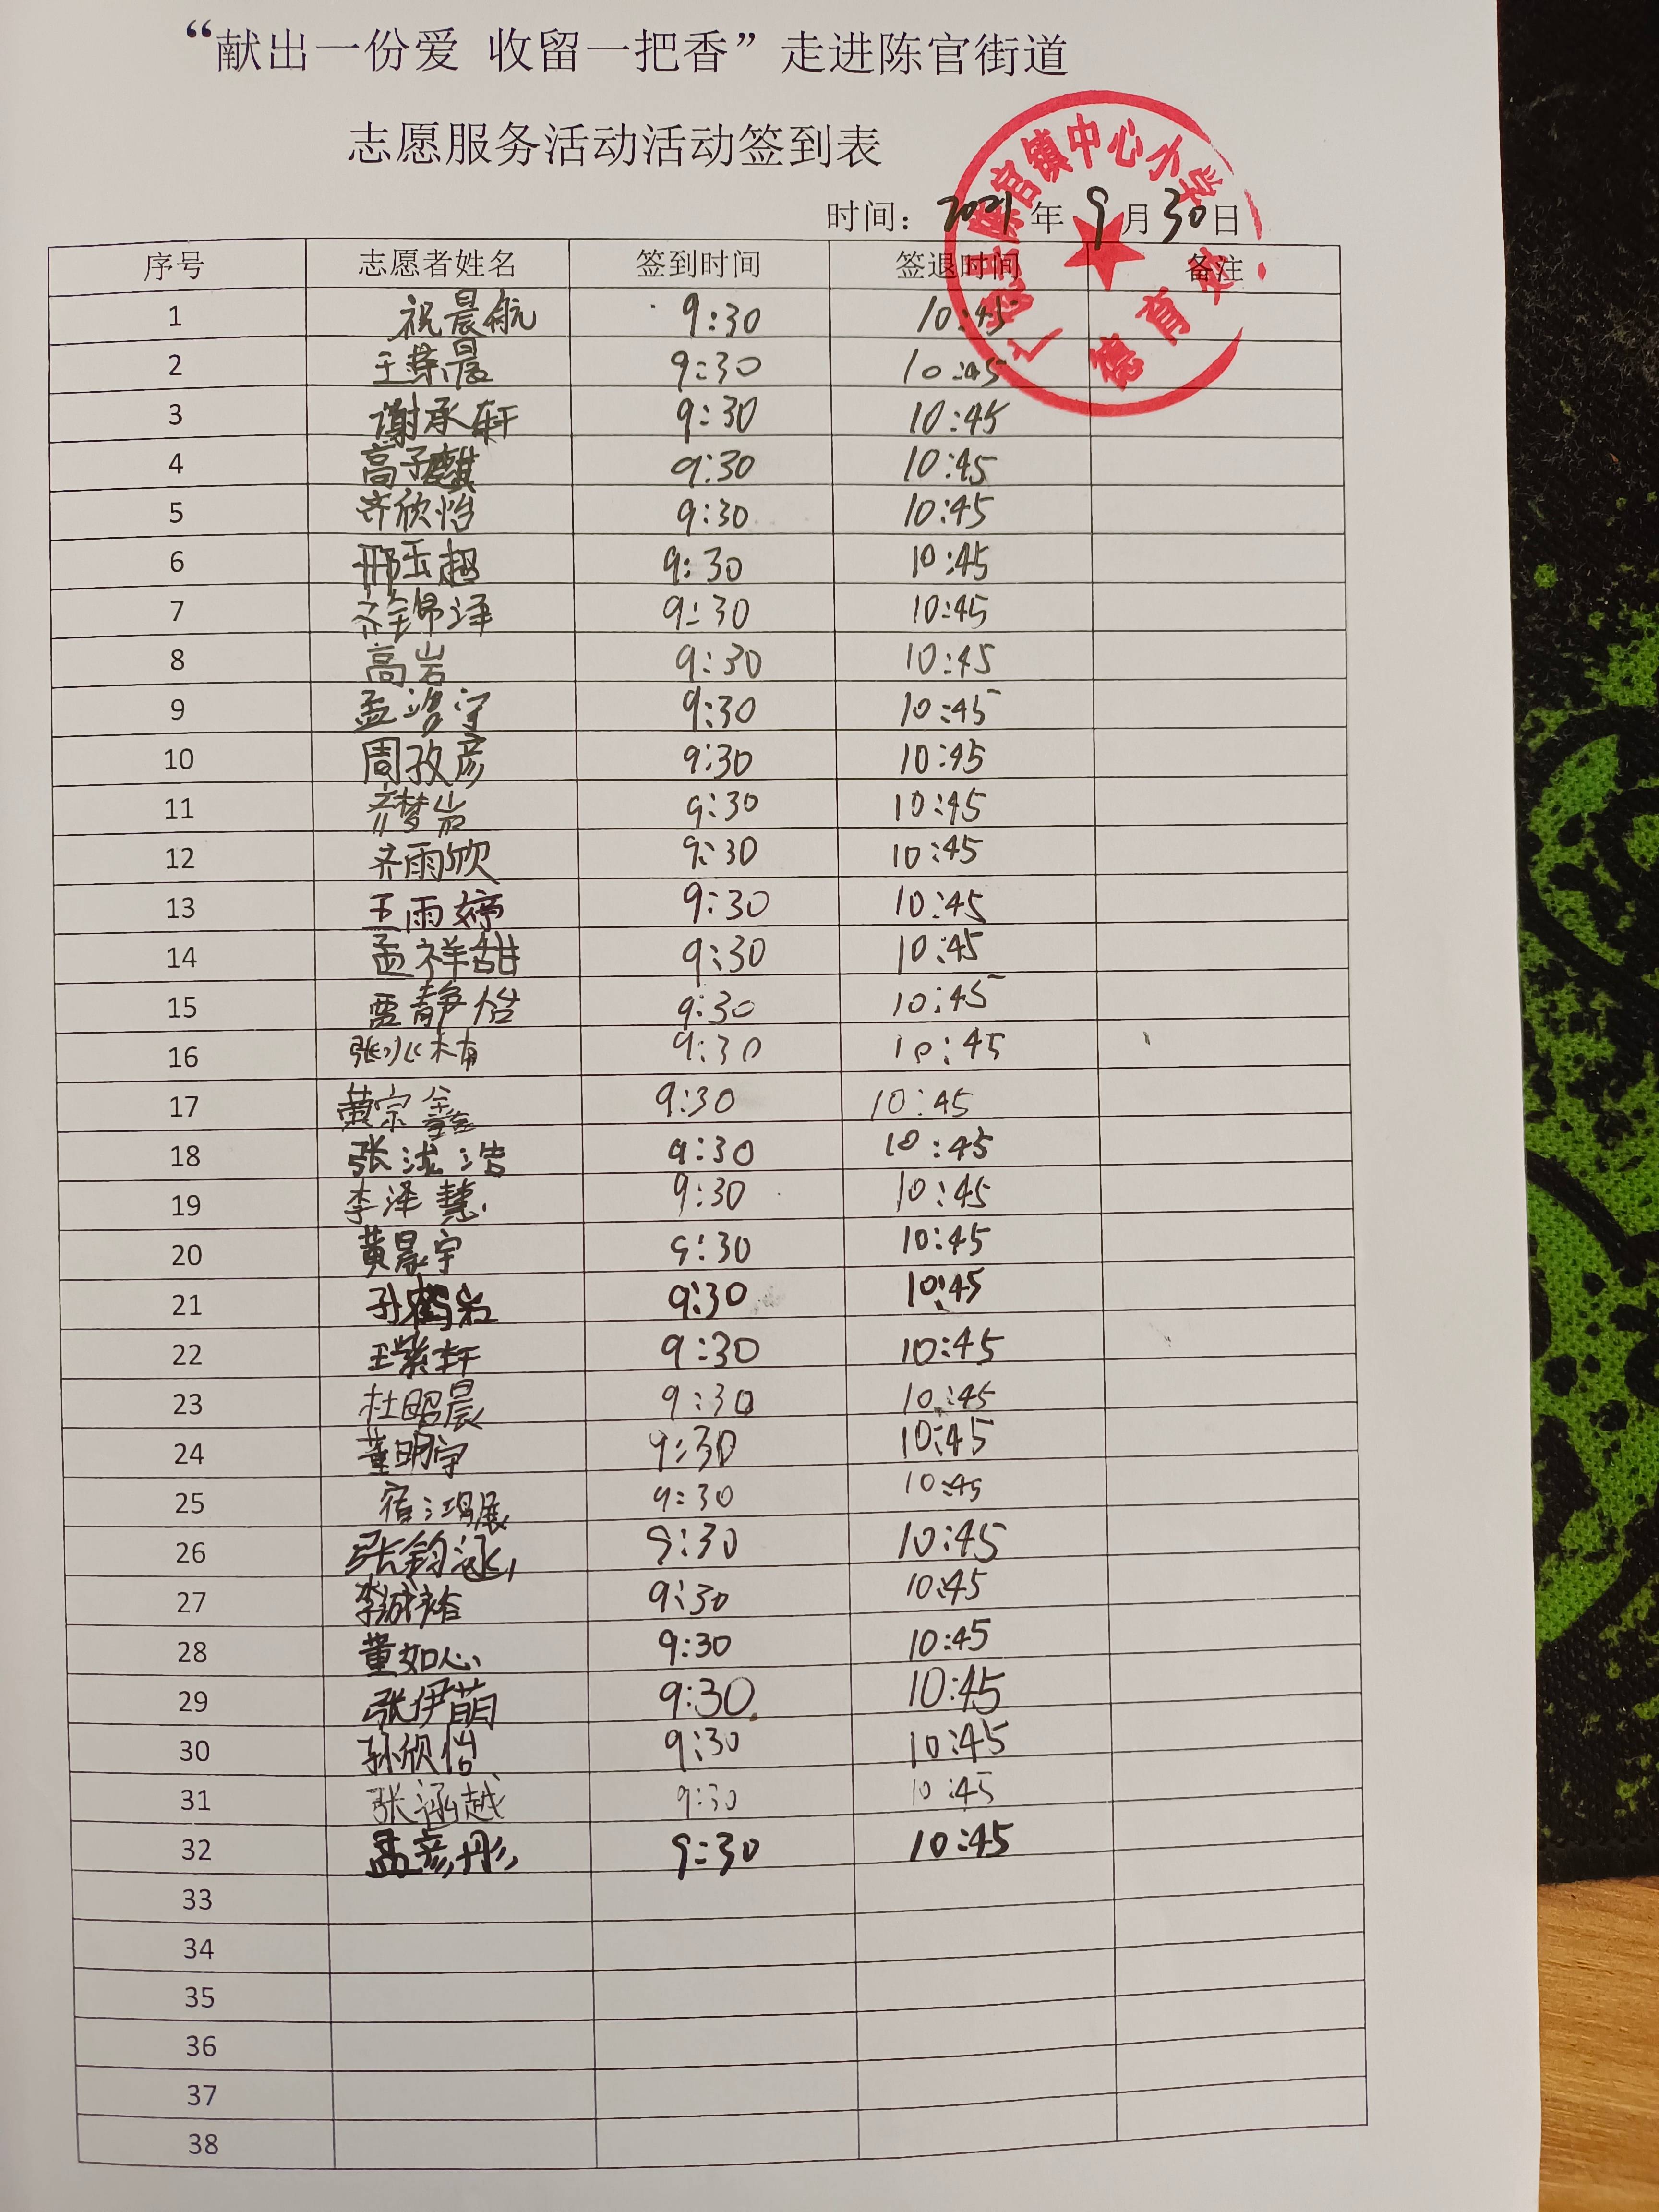 “献出一份爱 收留一把香”走进陈官街道
志愿服务活动活动签到表
时间：2021年9月30日
广饶县陈官镇中心小学
德育处
序号 志愿者姓名 签到时间 签退时间 备注
1 祝晨航 9:30 10:45
2 王荣晨 9:30 10:45
3 谢承轩 9:30 10:45
4 高子麒 9:30 10:45
5 齐欣怡 9:30 10:45
6 邢玉超 9:30 10:45
7 齐锦泽 9:30 10:45
8 高岩 9:30 10:45
9 孟鸿宇 9:30 10:45
10 周孜彦 9:30 10:45
11 齐梦岩 9:30 10:45
12 齐雨欣 9:30 10:45
13 王雨婷 9:30 10:45
14 孟祥甜 9:30 10:45
15 贾静怡 9:30 10:45
16 张 9:30 10:45
17 黄宗鑫 9:30 10:45
18 张浩 9:30 10:45
19 李泽慧 9:30 10:45
20 黄晨宇 9:30 10:45
21 孙鹤岩 9:30 10:45
22 王紫轩 9:30 10:45
23 杜昭晨 9:30 10:45
24 董明宇 9:30 10:45
25 宿鸿展 9:30 10:45
26 张钧涵 9:30 10:45
27 李诚裕 9:30 10:45
28 董如心 9:30 10:45
29 张伊萌 9:30 10:45
30 孙欣怡 9:30 10:45
31 张涵越 9:30 10:45
32 孟彦彤 9:30 10:45
33
34
35
36
37
38